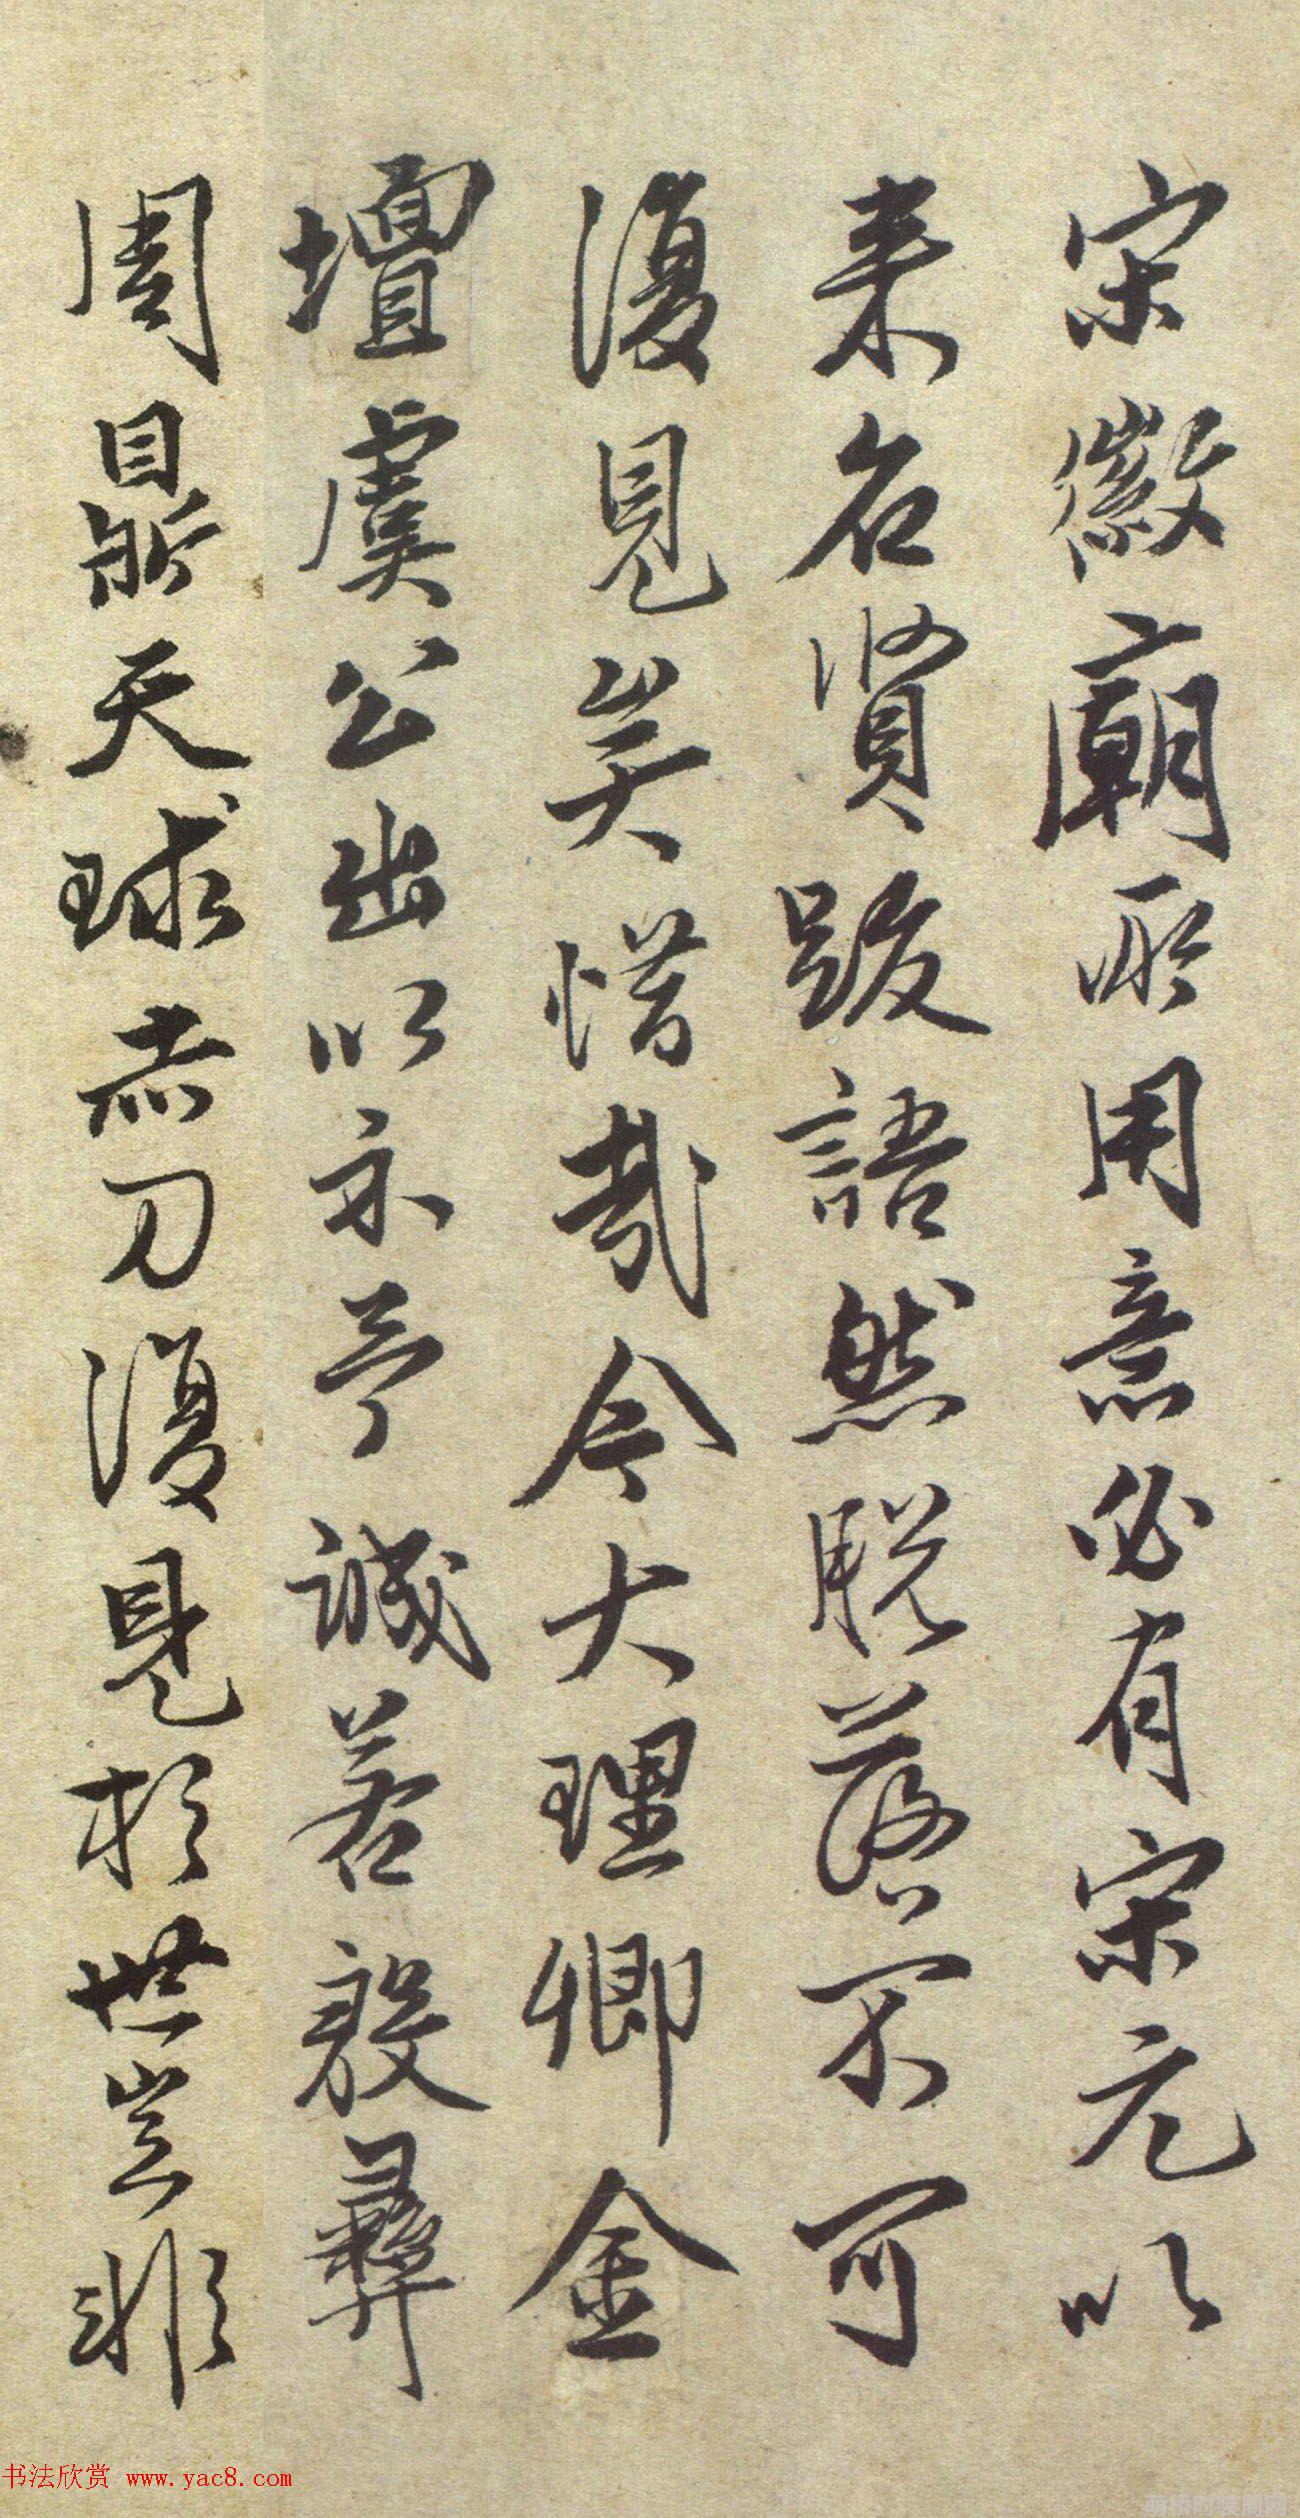 宋徽廟所用意必有宋元以
来名賢跋語然脱落不可
復見矣惜哉今大理卿金
壇虞公出以示予誠若殷彝
周鼎天球赤刀復見於世豈非
书法欣赏 www.yac8.com